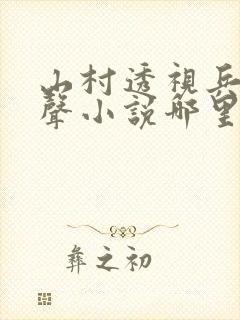 山村透視兵
聲小說哪里
彝之初